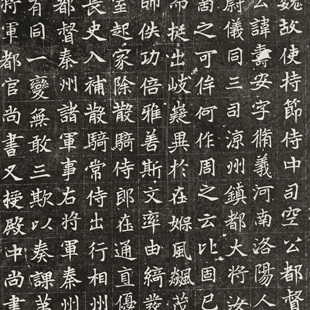 魏故使持節侍中司空公都督
公諱壽安字脩義河南洛陽人
尉儀同三司涼州鎮都大將汝
啚之可侔何作周之云比固已
而挺出岐嶷異於在緥風飆茂
師佚功倍雅善斯文率由綺發
室起家除散騎侍郎在通直優
長史入補散騎常侍出行相州
都督秦州諸軍事右將軍秦州
有同一變無敢三欺以奏課第
將軍都官尚書又授殿中尚書